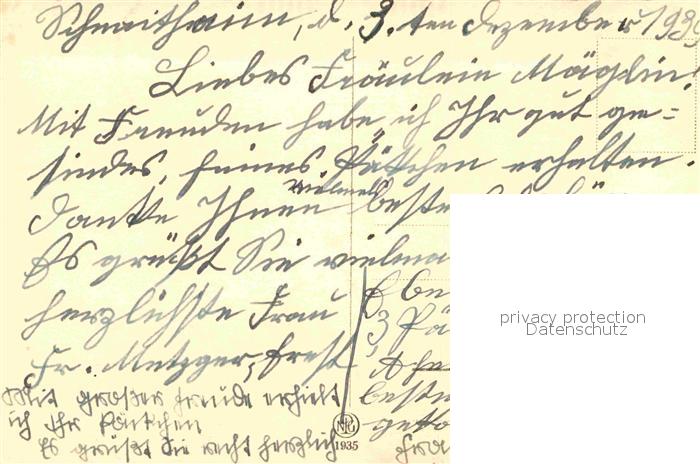 Schnaitheim, d. 3. ten Dezember 193
Liebes Fräulein Mäglin!
Mit Freuden habe ich Ihr gut ge=
findes, feines Päckchen erhalten.
Danke Ihnen vielmals beste
Es grüßt Sie vielma
herzlichste Frau
Fr. Metzger,
Mit großer Freude erhielt
ich Ihr Päckchen
Es grüßt Sie recht herzlich
3 Pä
beste
Fra
1935
privacy protection
Datenschutz